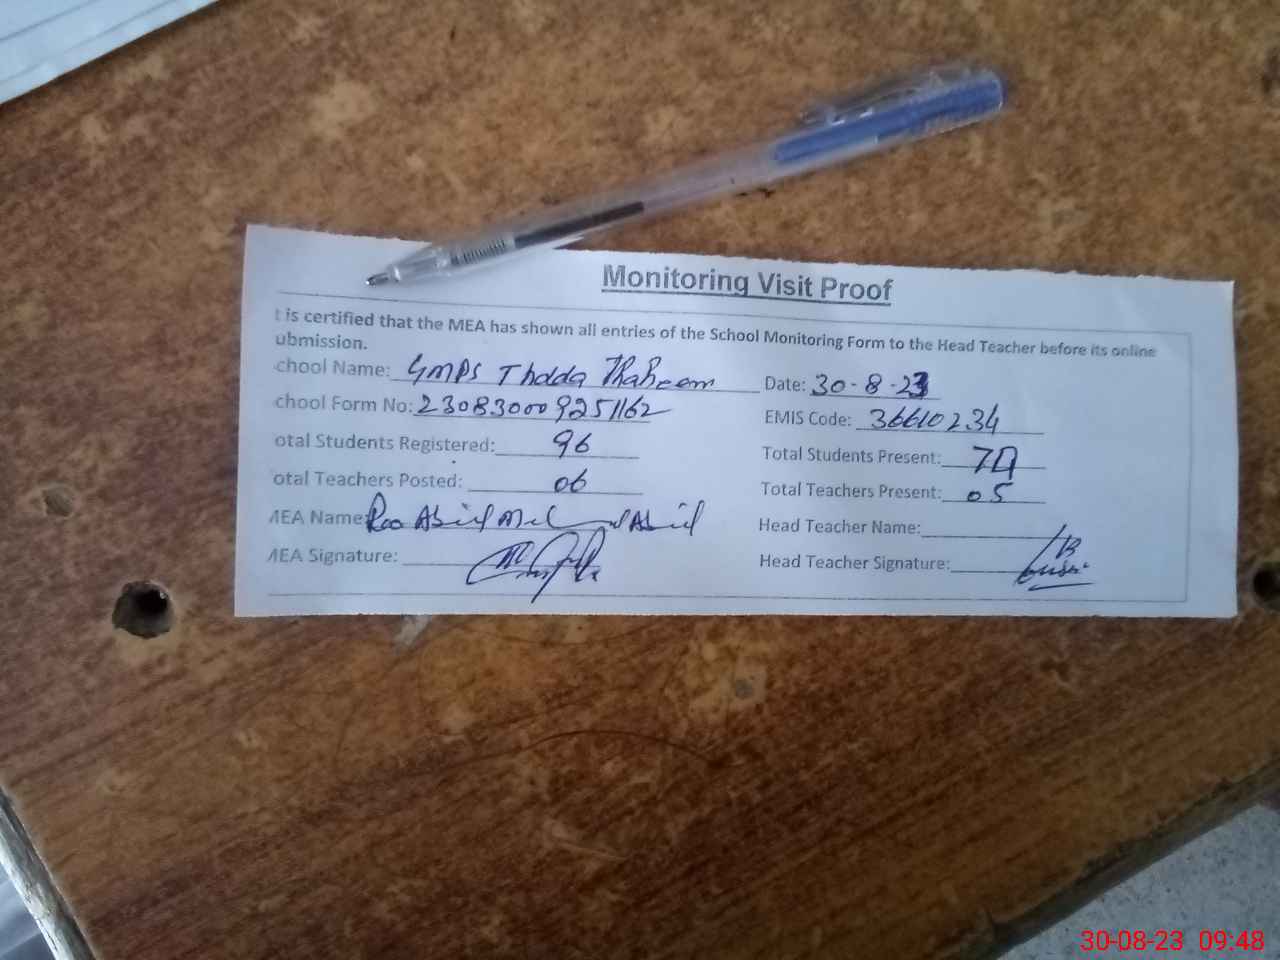 Monitoring Visit Proof
t is certified that the MEA has shown all entries of the School Monitoring Form to the Head Teacher before its online
ubmission.
chool Name: GMPS Thdda Thaheem Date: 30-8-23
chool Form No: 230830009251162 EMIS Code: 36610234
otal Students Registered: 96 Total Students Present:
otal Teachers Posted: 06 Total Teachers Present: 05
MEA Name: Rao Abid Abid Head Teacher Name:
MEA Signature: Head Teacher Signature:
30-08-23 09:48